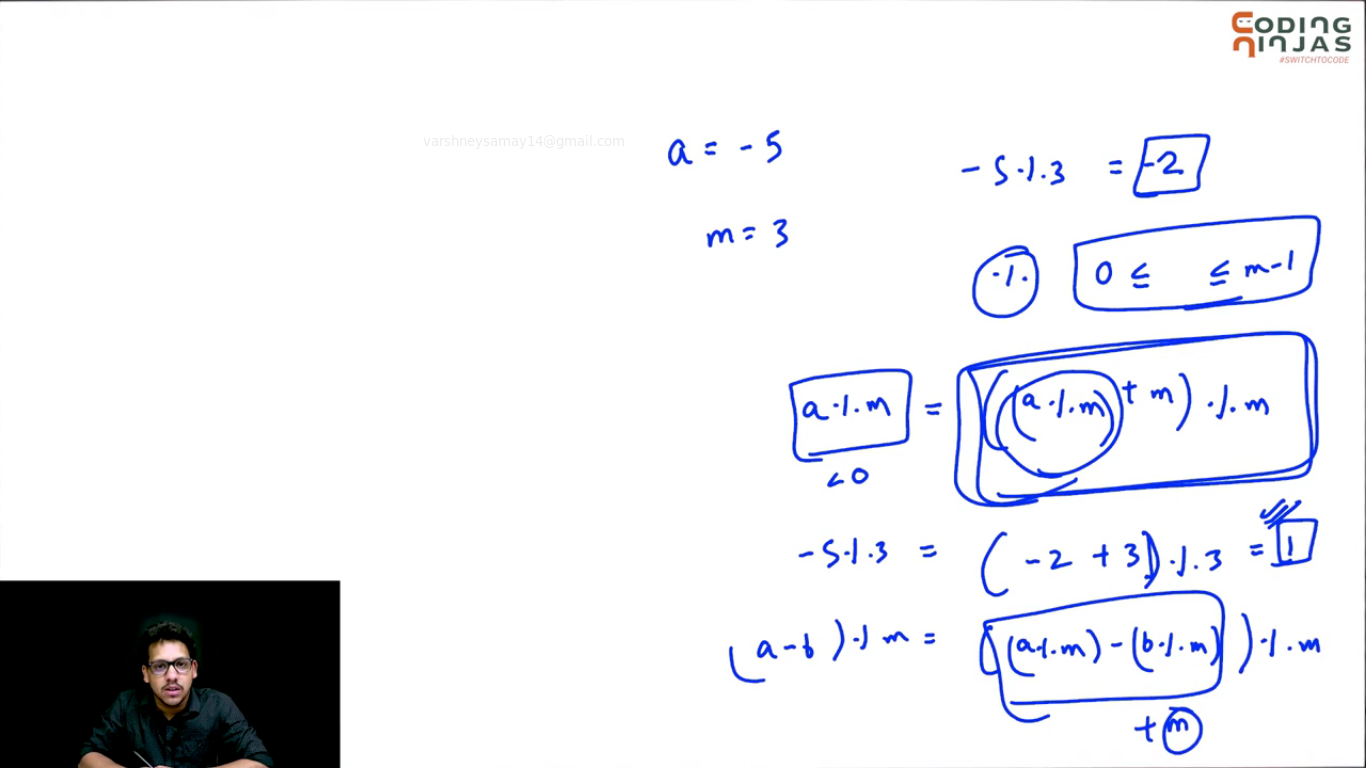 CODING
NINJAS
#SWITCHTOCODE
varshneysamay14@gmail.com
a = -5
-5 % 3 = -2
m = 3
% 0 ≤ ≤ m-1
a % m = ((a % m) + m) % m
< 0
-5 % 3 = (-2 + 3) % 3 = 1
(a-b) % m = ((a % m) - (b % m)) % m
+ m